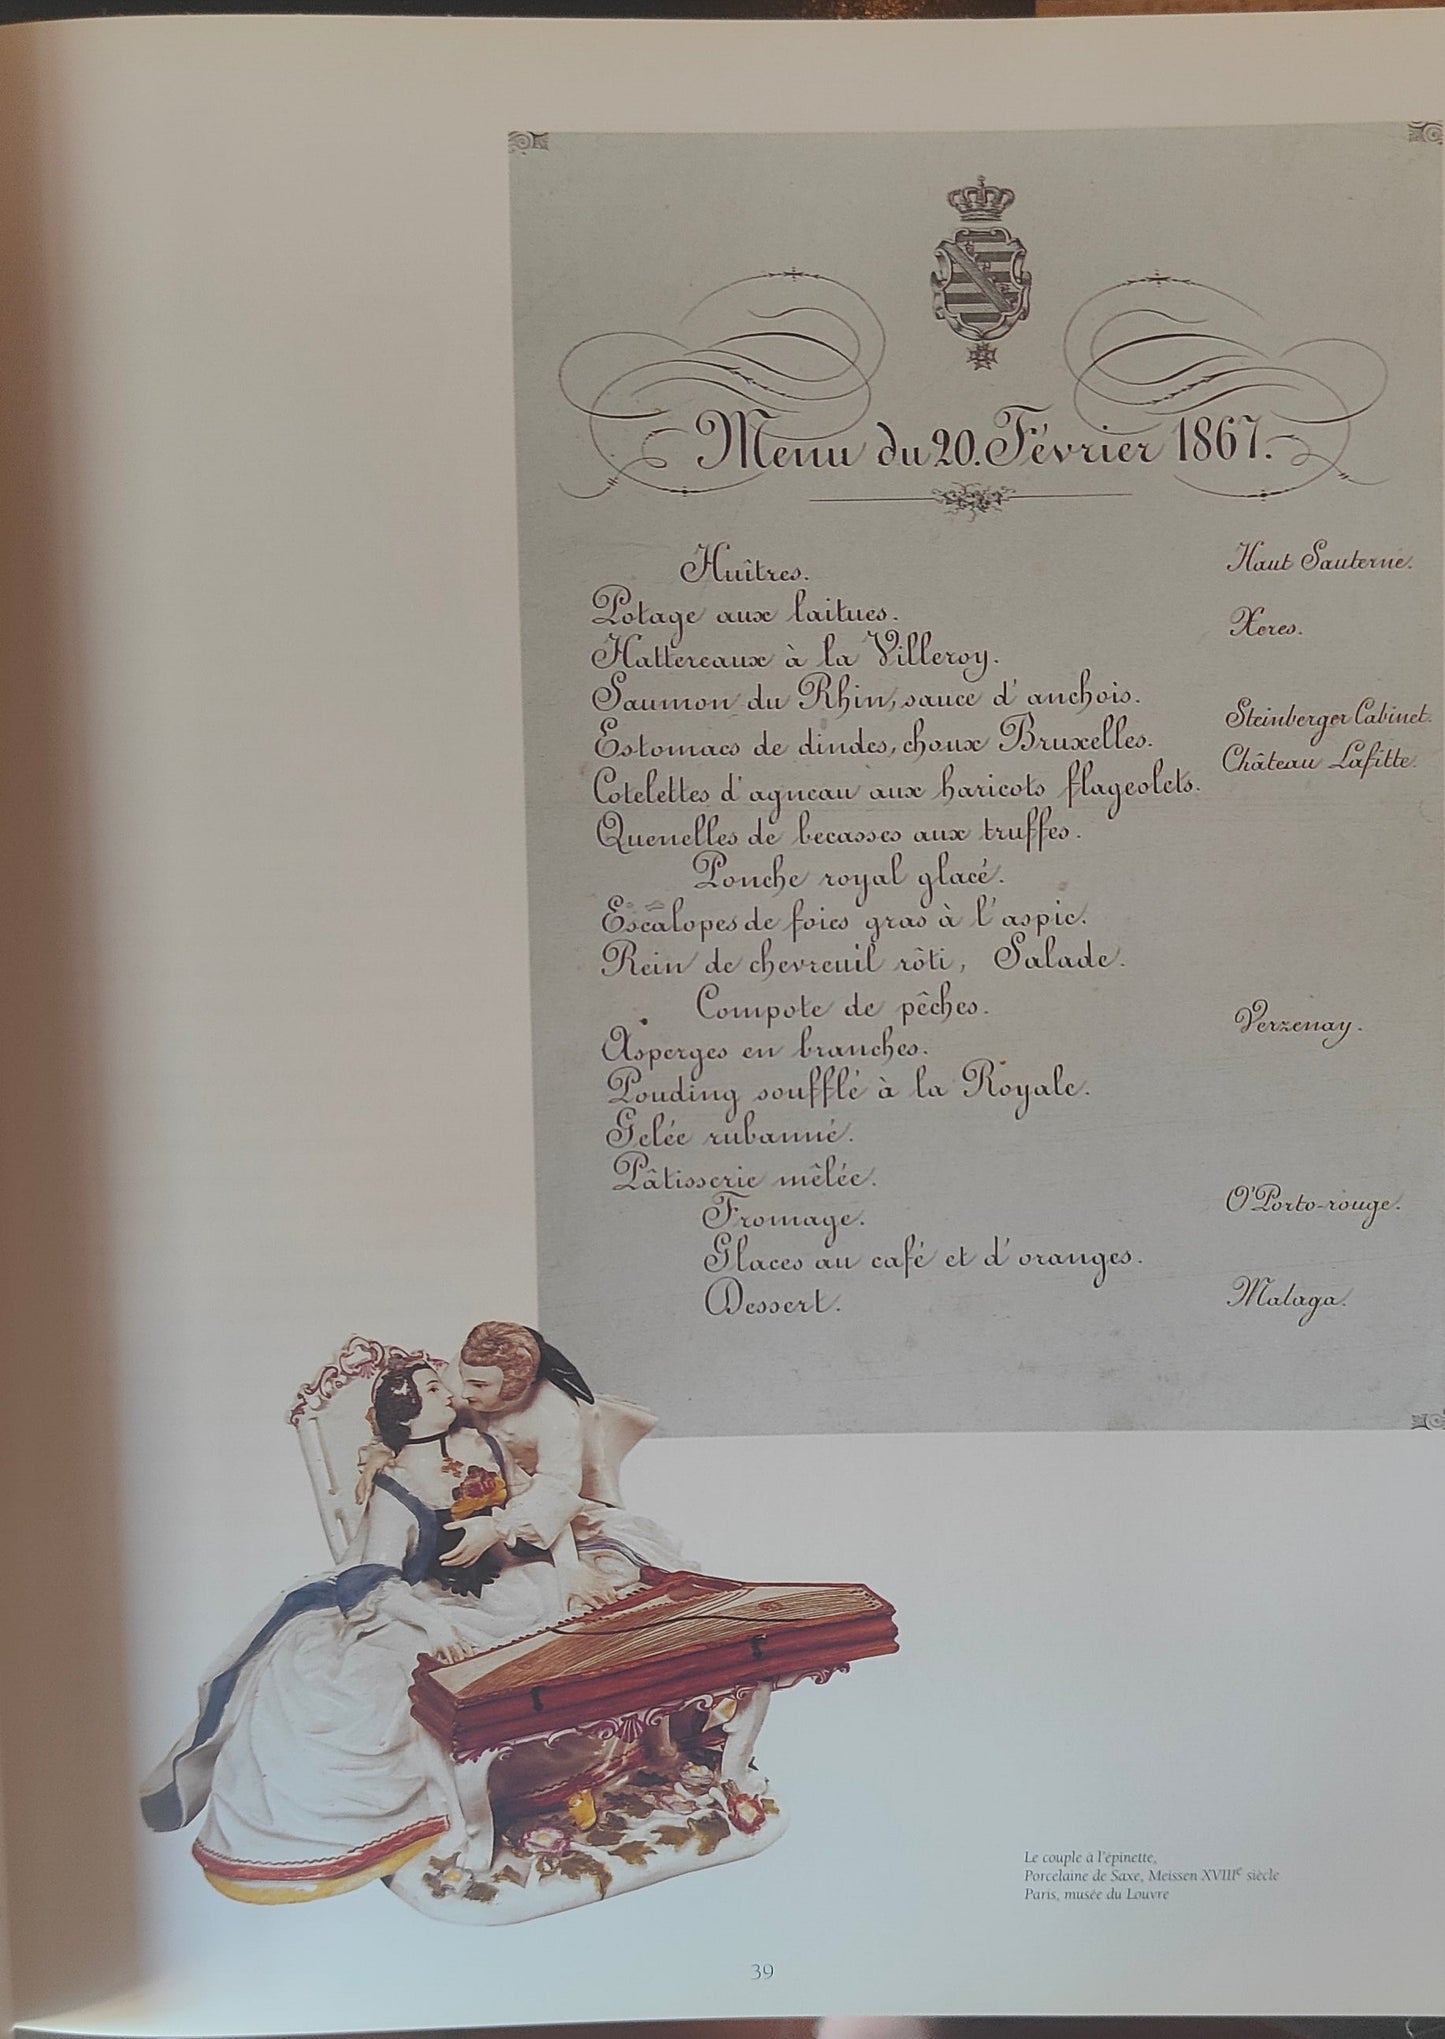 Menu du 20. Février 1867.
Huîtres. Haut Sauterne.
Potage aux laitues. Xeres.
Hattereaux à la Villeroy.
Saumon du Rhin, sauce d'anchois. Steinberger Cabinet.
Estomacs de dindes, choux Bruxelles. Château Lafitte.
Cotelettes d'agneau aux haricots flageolets.
Quenelles de becasses aux truffes.
Ponche royal glacé.
Escalopes de foies gras à l'aspic.
Rein de chevreuil rôti, Salade.
Compote de pêches. Verzenay.
Asperges en branches.
Pouding soufflé à la Royale.
Gelée rubanné.
Pâtisserie mêlée.
Fromage. O'Porto-rouge.
Glaces au café et d'oranges.
Dessert. Malaga.
Le couple à l'épinette,
Porcelaine de Saxe, Meissen XVIIIe siècle
Paris, musée du Louvre
39